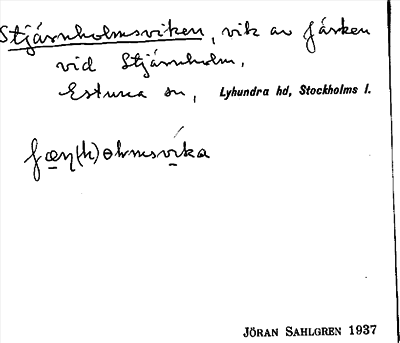 Stjärnholmsviken, vik av Färken
vid Stjärnholm,
Estuna sn, Lyhundra hd, Stockholms l.
JÖRAN SAHLGREN 1937